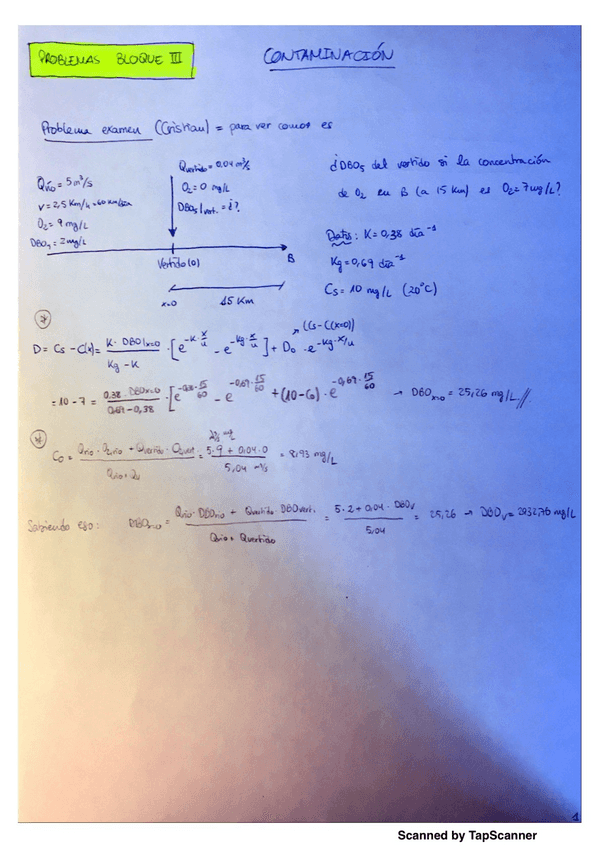 PROBLEMAS BLOQUE III
CONTAMINACIÓN
Problema examen (Cristian) = para ver como es
Qrío = 5 m³/s
v = 2,5 Km/h = 60 Km/día
O₂ = 9 mg/L
DBO₅ = 2 mg/L
Qvertido = 0,04 m³/s
O₂ = 0 mg/L
DBO₅|vert. = ¿?
Vertido (0)
B
x=0
15 Km
¿DBO₅ del vertido si la concentración
de O₂ en B (a 15 Km) es O₂ = 7 mg/L?
Datos: K = 0,38 día⁻¹
Kg = 0,69 día⁻¹
Cs = 10 mg/L (20°C)
(Cs - C(x=0))
D = Cs - C(x) = K · DBO|x=0 / Kg - K · [e^-K·x/u - e^-Kg·x/u] + D₀ · e^-Kg·x/u
= 10 - 7 = 0,38 · DBOx=0 / 0,69 - 0,38 · [e^-0,38·15/60 - e^-0,69·15/60 + (10 - C₀) · e^-0,69·15/60 → DBO = 25,26 mg/L //
C₀ = Qrío · O₂río + Qvertido · O₂vert. / Qrío + Qv = 5 · 9 + 0,04 · 0 / 5,04 m³/s = 8,93 mg/L
Sabiendo eso: DBO = Qrío · DBOrío + Qvertido · DBOvert. / Qrío + Qvertido = 5 · 2 + 0,04 · DBOv / 5,04 = 25,26 → DBOv = 2932,76 mg/L
1
Scanned by TapScanner